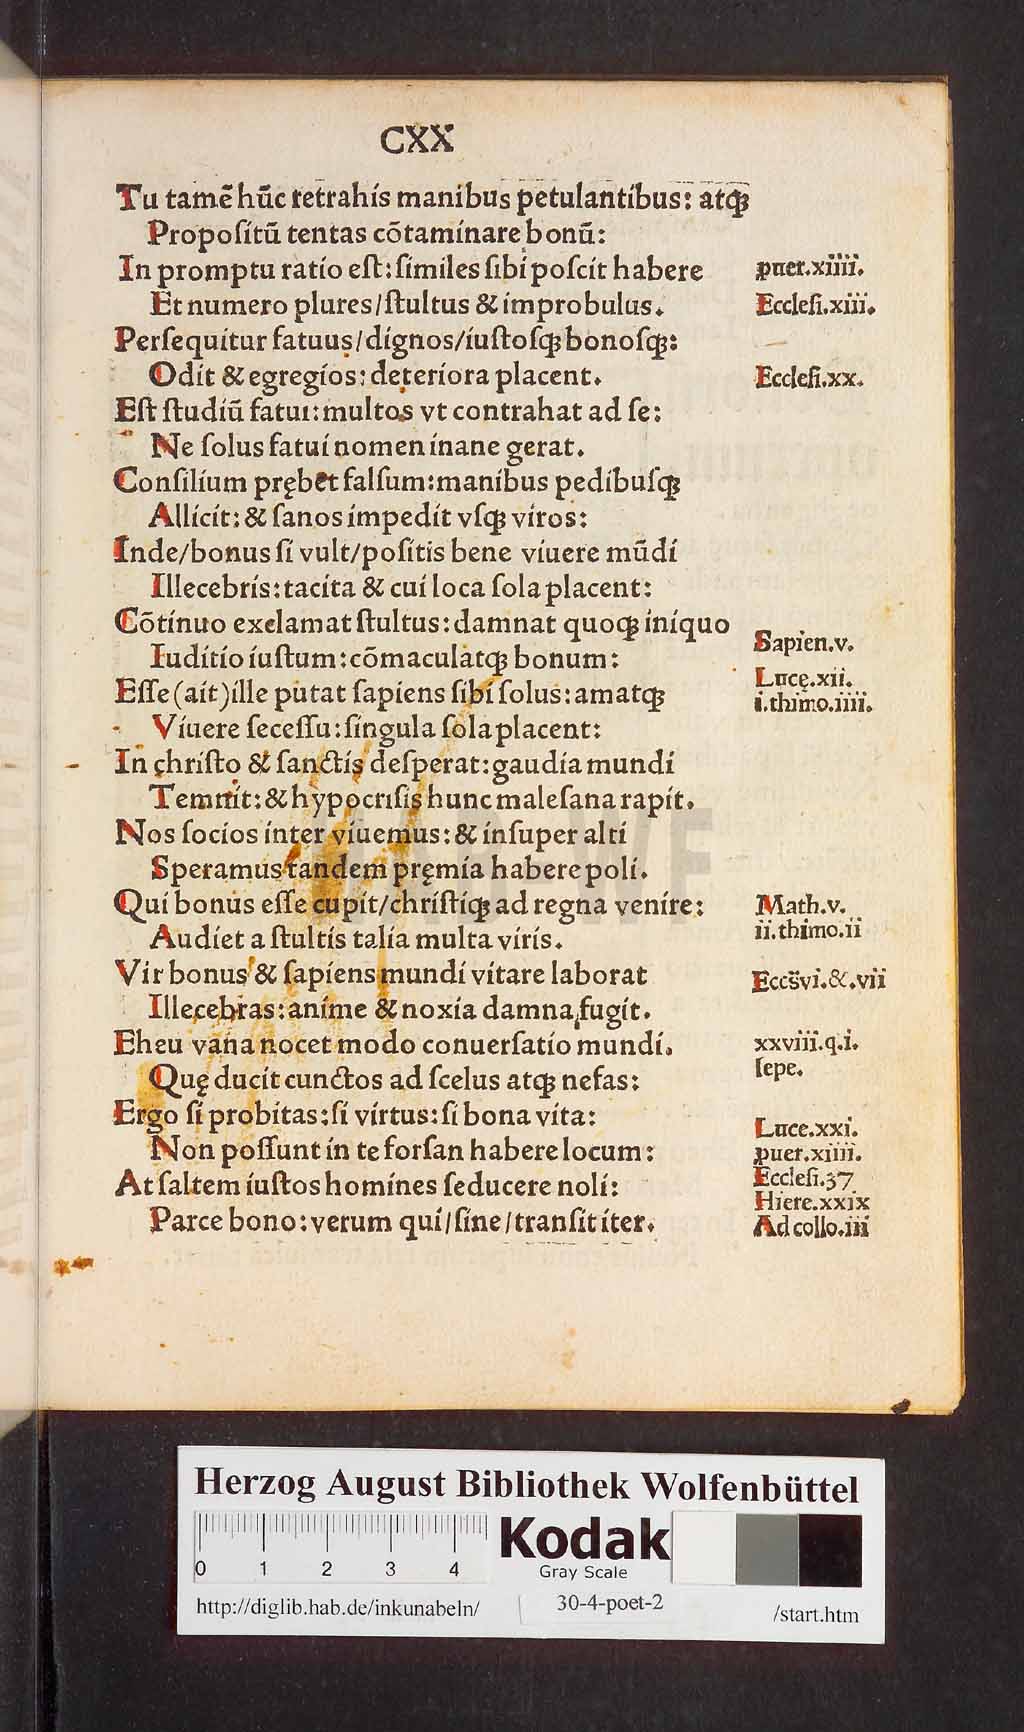 CXX
Tu tamē hūc retrahis manibus petulantibus: atqꝫ
Propoſitū tentas cōtaminare bonū:
In promptu ratio eſt: ſimiles ſibi poſcit habere
puer.xiiii.
Et numero plures/ſtultus & improbulus.
Eccleſi.xiii.
Perſequitur fatuus/dignos/iuſtoſqꝫ bonoſqꝫ:
Odit & egregios: deteriora placent.
Eccleſi.xx.
Eſt ſtudiū fatui: multos vt contrahat ad ſe:
Ne ſolus fatui nomen inane gerat.
Conſilium prębet falſum: manibus pedibuſqꝫ
Allicit: & ſanos impedit vſqꝫ viros:
Inde/bonus ſi vult/poſitis bene viuere mūdi
Illecebris: tacita & cui loca ſola placent:
Cōtinuo exclamat ſtultus: damnat quoqꝫ iniquo
Sapien.v.
Iuditio iuſtum: cōmaculatqꝫ bonum:
Lucę.xii.
Eſſe (ait) ille putat ſapiens ſibi ſolus: amatqꝫ
i.thimo.iiii.
Viuere ſeceſſu: ſingula ſola placent:
In chriſto & ſanctis deſperat: gaudia mundi
Temnit: & hypocriſis hunc maleſana rapit.
Nos ſocios inter viuemus: & inſuper alti
Speramus tandem pręmia habere poli.
Qui bonus eſſe cupit/chriſtiqꝫ ad regna venire:
Math.v.
Audiet a ſtultis talia multa viris.
ii.thimo.ii
Vir bonus & ſapiens mundi vitare laborat
Eccs̄vi.&.vii
Illecebras: anime & noxia damna fugit.
Eheu vana nocet modo conuerſatio mundi.
xxviii.q.i.
ſepe.
Quę ducit cunctos ad ſcelus atqꝫ nefas:
Ergo ſi probitas: ſi virtus: ſi bona vita:
Luce.xxi.
Non poſſunt in te forſan habere locum:
puer.xiiii.
At ſaltem iuſtos homines ſeducere noli:
Eccleſi.37
Hiere.xxix
Parce bono: verum qui/ſine/tranſit iter.
Ad collo.iii
HAB-WF
Herzog August Bibliothek Wolfenbüttel
0 1 2 3 4
Kodak
Gray Scale
http://diglib.hab.de/inkunabeln/
30-4-poet-2
/start.htm